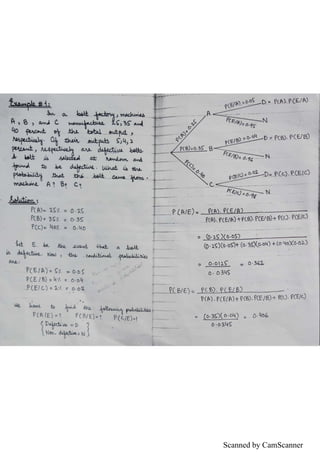 Example # 1:
In a bolt factory, machines
A, B, and C manufacture 25, 35 and
40 percent of the total output,
respectively. Of their outputs 5, 4, 2
percent, respectively are defective bolts
A bolt is selected at random and
found to be defective. What is the
probability that the bolt came from
machine A? B? C?
Solution:
P(A) = 25% = 0.25
P(B) = 35% = 0.35
P(C) = 40% = 0.40
Let E be the event that a bolt
is defective. Now, the conditional probabilities
are:
P(E/A) = 5% = 0.05
P(E/B) = 4% = 0.04
P(E/C) = 2% = 0.02
We have to find the following probabilities
P(A/E) = ? P(B/E) = ? P(C/E) = ?
{Defective = D
Non. defective = N}
P(E/A) = 0.05 D = P(A). P(E/A)
A
P(A) = 0.25
P(E/A) = 0.95 N
P(E/B) = 0.04 D = P(B). P(E/B)
P(B) = 0.35 B
P(E/B) = 0.96 N
P(E/C) = 0.02 D = P(C). P(E/C)
P(C) = 0.40
C
P(E/C) = 0.98 N
P(A/E) = P(A). P(E/B)
P(A). P(E/A) + P(B). P(E/B) + P(C). P(E/C)
= (0.25)(0.05)
(0.25)(0.05) + (0.35)(0.04) + (0.40)(0.02)
= 0.0125 = 0.362
0.0345
P(B/E) = P(B). P(E/B)
P(A). P(E/A) + P(B). P(E/B) + P(C). P(E/C)
= (0.35)(0.04) = 0.406
0.0345
Scanned by CamScanner